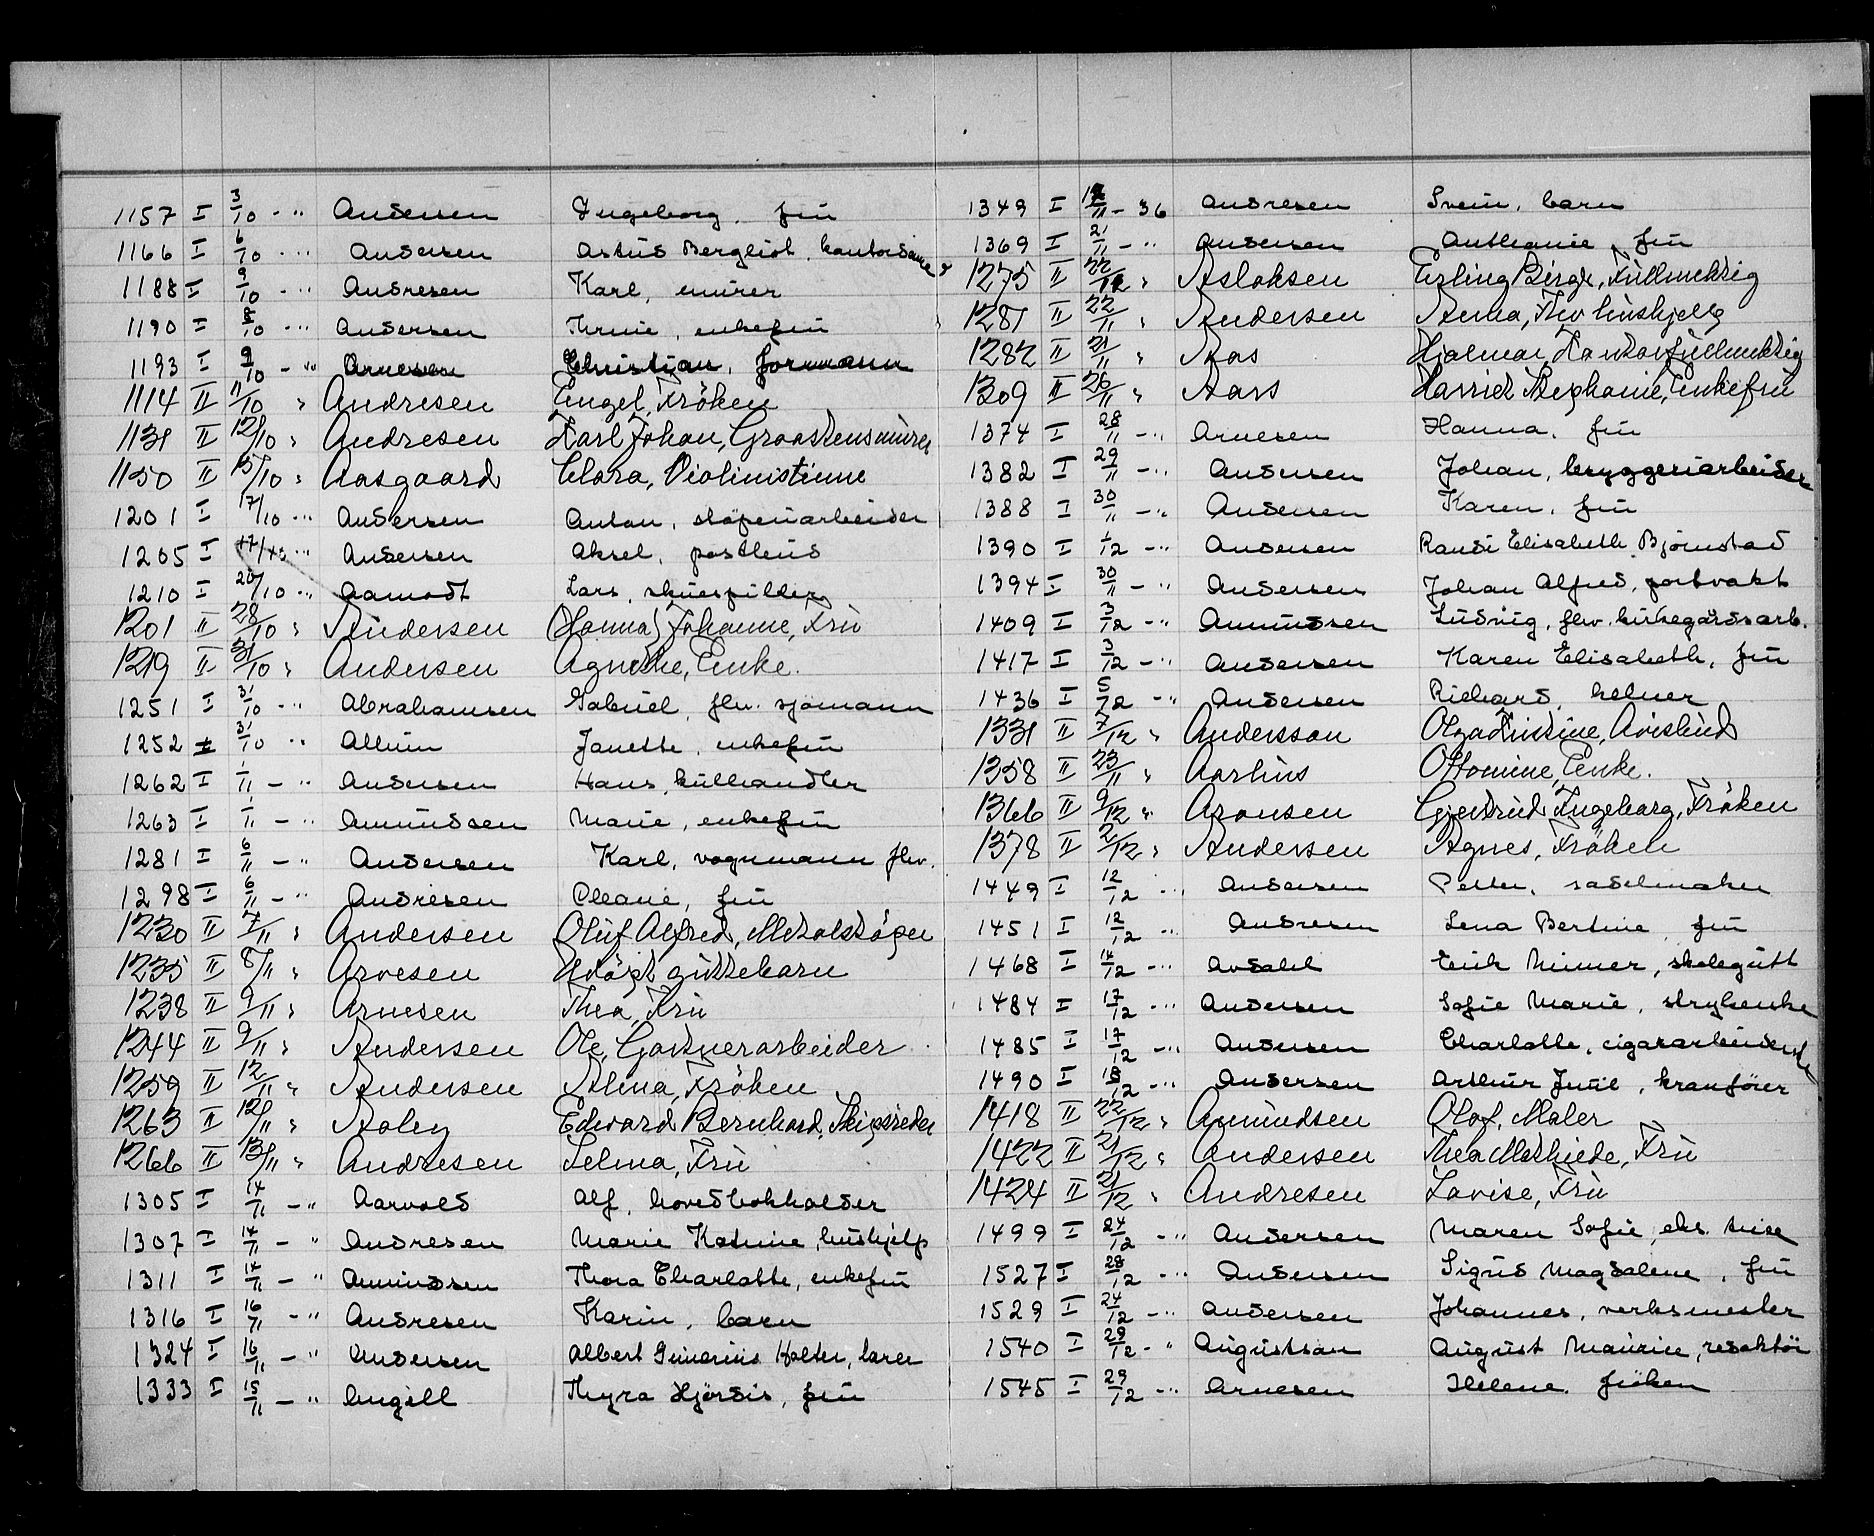 1157 I 3/10 - " Andersen Ingeborg, fru
1166 I 6/10 - " Andersen Astrid Bergliot, kontordame
1188 I 9/10 - " Andresen Karl, murer
1190 I 8/10 - " Andersen Trine, enkefru
1193 I 9/10 - " Arnesen Christian, formann
1114 II 11/10 " Andresen Engel, Fröken
1131 II 12/10 " Andresen Karl Johan, Graastensmurer
1150 II 15/10 " Aasgaard Clara, Violinistinne
1201 I 17/10 - " Andersen Anton, støperiarbeider
1205 I 17/10 - " Andersen Aksel, postbud
1210 I 20/10 - " Aamodt Lars, skuespiller
1201 II 28/10 " Andersen (Hanna) Johanne, Fru
1219 II 31/10 " Andersen Agnethe, Enke.
1251 I 31/10 - " Abrahamsen Gabriel, fhv. sjømann
1252 I 31/10 " Allum Janette, enkefru
1262 I 1/11 - " Andersen Hans, kullhandler
1263 I 1/11 - " Amundsen Marie, enkefru
1281 I 6/11 - " Andersen Karl, vognmann fhv.
1298 I 6/11 - " Andresen Oleane, fru
1230 II 7/11 " Andersen Oluf Alfred, Metalstöper
1235 II 8/11 " Arvesen Udöpt guttebarn
1238 II 9/11 " Arnesen Thea, Fru
1244 II 9/11 " Andersen Ole, Gartnerarbeider
1259 II 12/11 " Andersen Alma, Fröken
1263 II 12/11 " Aaley Edvard Bernhard, Skipsreder
1266 II 13/11 " Andresen Selma, Fru
1305 I 14/11 - " Aarvold Alf, hovedbokholder
1307 I 14/11 - " Andresen Marie Katrine, hushjelp
1311 I 14/11 - " Amundsen Thora Charlotte, enkefru
1316 I 16/11 - " Andresen Karin, barn
1324 I 16/11 - " Andersen Albert Gunerius Holter, lærer
1333 I 15/11 - " Angell Thyra Hjördis, fru
1349 I 11 - 36 Andresen Svein, barn
1369 I 21/11 - " Andersen Anthonie, fru
1275 II 22/12 " Aslaksen Erling Birger, Fullmektig
1281 II 22/11 " Andersen Anna, Fhv hushjelp
1282 II 21/11 " Aas Hjalmar, Kontorfullmektig
1309 II 26/11 " Aars Harriet Stephanie, Enkefru
1374 I 28/11 - " Arnesen Hanna, fru
1382 I 29/11 - " Andersen Johan, bryggeriarbeider
1388 I 30/11 - " Andersen Karen, fru
1390 I 1/12 - " Andersen Randi Elisabeth Bjørnstad
1394 I 30/11 - " Andersen Johan Alfred, portvakt
1409 I 3/12 - " Amundsen Ludvig, fhv. kirkegårdsarb.
1417 I 3/12 - " Andersen Karen Elisabeth, fru
1436 I 5/12 - " Andersen Richard, kelner
1331 II 7/12 " Andersson Olga Kristine, Avisbud
1358 II 23/11 " Aarhus Ottomine, Enke.
1366 II 9/12 " Aronsen Gjertrud Ingeborg, Fröken
1378 II 2/12 " Andersen Agnes, Fröken
1449 I 12/12 - " Andersen Petter, sadelmaker
1451 I 12/12 - " Andresen Lena Bertine, fru
1468 I 14/12 - " Avdahl Erik Werner, skolegutt
1484 I 17/12 - " Andersen Sofie Marie, strykerske
1485 I 17/12 - " Andersen Charlotte, cigararbeiderske
1490 I 18/12 - " Andersen Arthur Juul, kranfører
1418 II 22/12 " Amundsen Olaf, Maler
1422 II 21/12 " Andersen Thea Mathilde, Fru
1424 II 21/12 " Andresen Lovise, Fru
1499 I 24/12 - " Andersen Maren Sofie, eks. huse
1527 I 28/12 - " Andersen Sigrid Magdalene, fru
1529 I 24/12 - " Andersen Johannes, verksmester
1540 I 29/12 - " Augustson August Maurice, redaktør
1545 I 29/12 - " Arnesen Helene, frøken